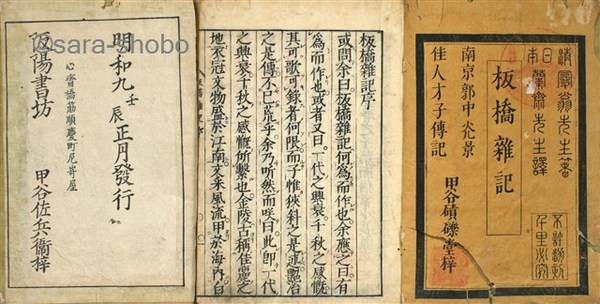 清曼翁先生著
日本蘭齋先生譯
不許翻刻
千里必究
板橋雜記
南京郭中光景
佳人才子傳記
甲谷磧礫堂梓
板橋雜記序
或問余曰板橋雜記何爲而作也余應之曰有
爲而作也或者又曰一代之興衰千秋之感慨
其可歌可録者何限而子惟狹斜之是述艷冶
之是傳不已荒乎余乃听然而咲曰此即一代
之興衰千秋之感慨所繫也金陵古稱佳麗之
地衣冠文物盛於江南文采風流甲於海內白
明和九壬辰正月發行
心齋橋筋順慶町尼嵜屋
阪陽書坊 甲谷佐兵衞梓
©sara-shobo